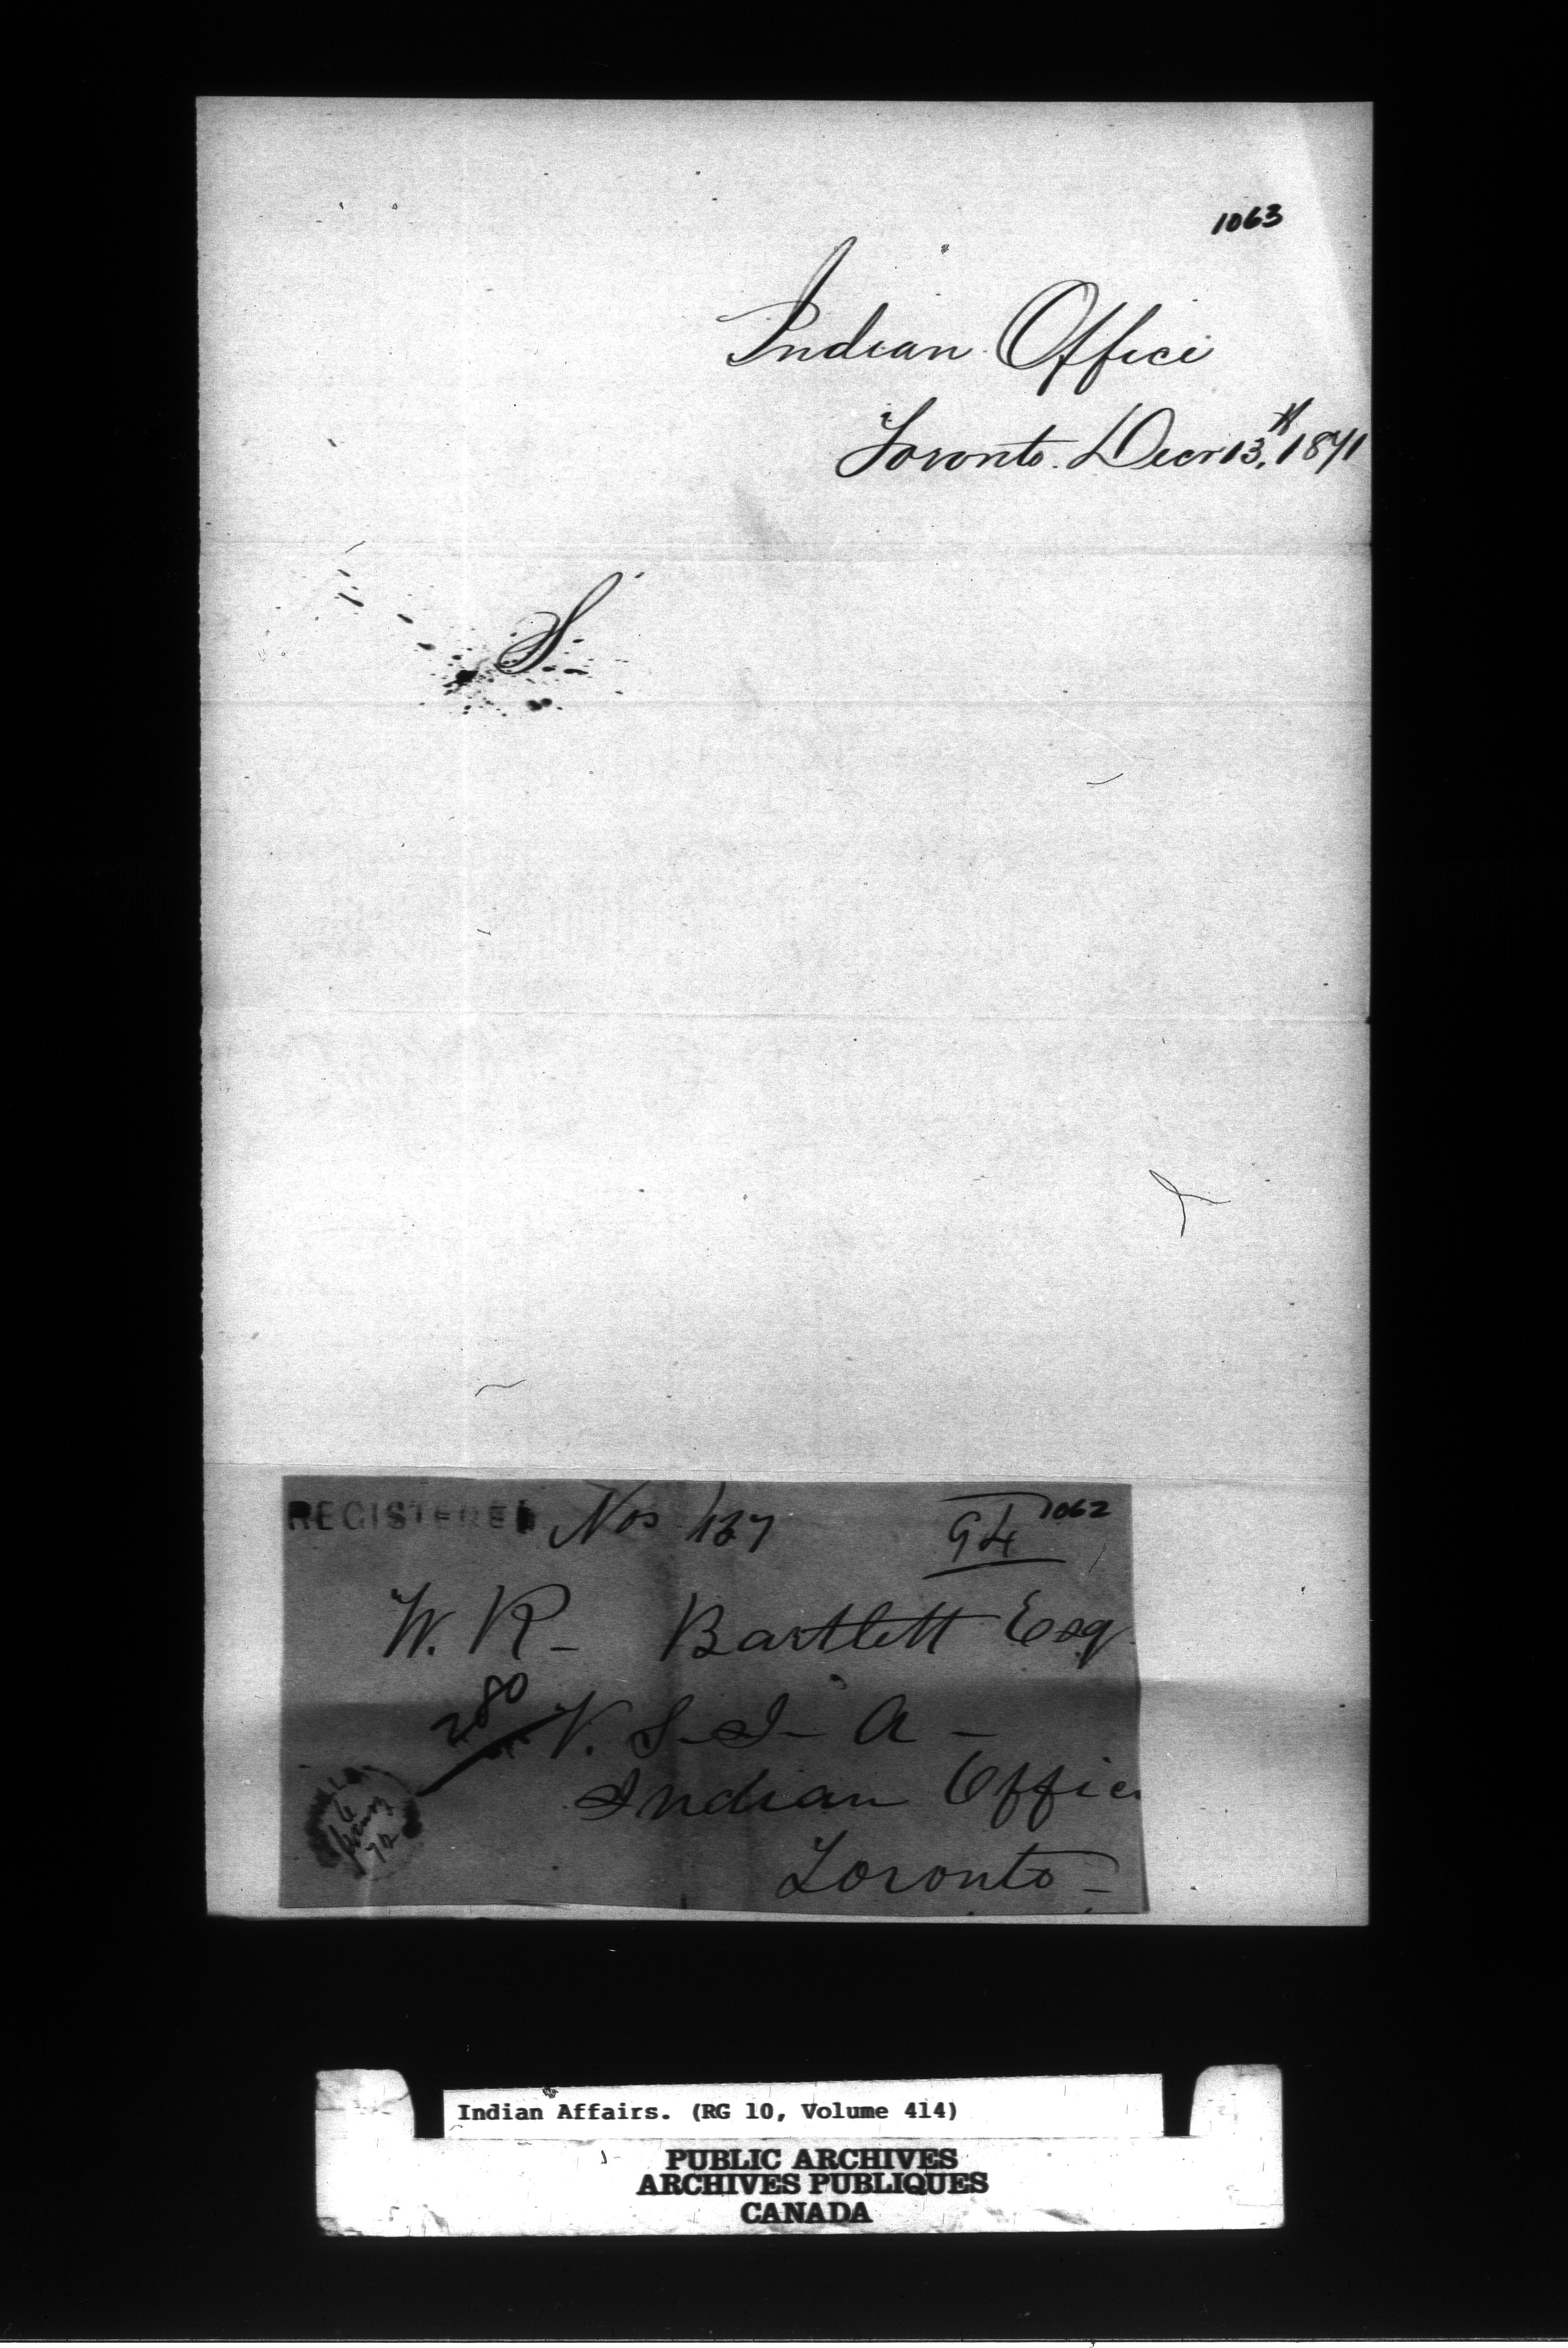 1063
Indian Office
Toronto. Decr 13th, 1871
S
REGISTERED Nos 137 94 1062
W. R- Bartlett Esq
280 V. S- I- A-
Indian Office
72
Toronto-
Indian Affairs. (RG 10, Volume 414)
PUBLIC ARCHIVES
ARCHIVES PUBLIQUES
CANADA